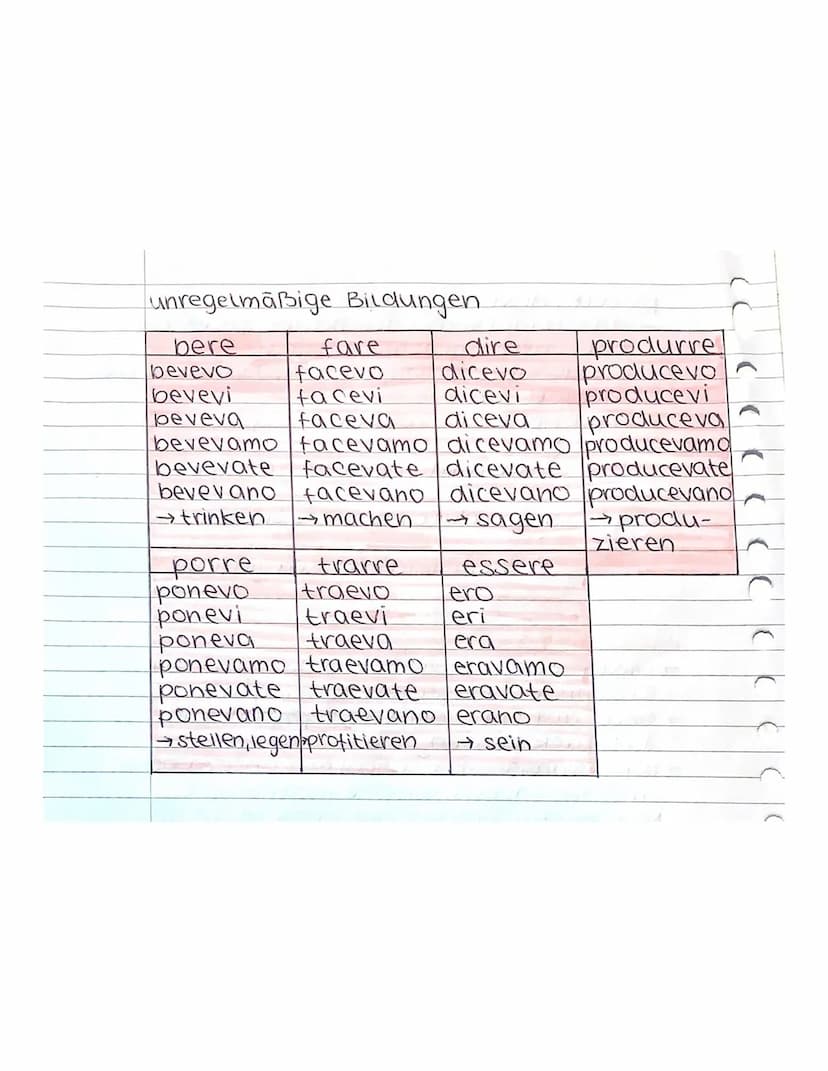 unregelmäßige Bildungen
bere fare dire produrre
bevevo facevo dicevo producevo
bevevi facevi dicevi producevi
beveva faceva diceva produceva
bevevamo facevamo dicevamo producevamo
bevevate facevate dicevate producevate
bevevano facevano dicevano producevano
→trinken →machen →sagen →produ-
zieren
porre trarre essere
ponevo traevo ero
ponevi traevi eri
poneva traeva era
ponevamo traevamo eravamo
ponevate traevate eravate
ponevano traevano erano
→stellen,legen →profitieren →sein